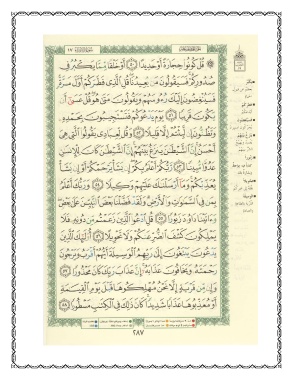 ۞ قُلْ كُونُوا۟ حِجَارَةً أَوْ حَدِيدًا ۝٥٠ أَوْ خَلْقًا مِّمَّا يَكْبُرُ فِى
صُدُورِكُمْ فَسَيَقُولُونَ مَن يُعِيدُنَا قُلِ ٱلَّذِى فَطَرَكُمْ أَوَّلَ مَرَّةٍ
فَسَيُنْغِضُونَ إِلَيْكَ رُءُوسَهُمْ وَيَقُولُونَ مَتَىٰ هُوَ قُلْ عَسَىٰٓ أَن
يَكُونَ قَرِيبًا ۝٥١ يَوْمَ يَدْعُوكُمْ فَتَسْتَجِيبُونَ بِحَمْدِهِۦ
وَتَظُنُّونَ إِن لَّبِثْتُمْ إِلَّا قَلِيلًا ۝٥٢ وَقُل لِّعِبَادِى يَقُولُوا۟ ٱلَّتِى هِىَ
أَحْسَنُ إِنَّ ٱلشَّيْطَـٰنَ يَنزَغُ بَيْنَهُمْ إِنَّ ٱلشَّيْطَـٰنَ كَانَ لِلْإِنسَـٰنِ
عَدُوًّا مُّبِينًا ۝٥٣ رَّبُّكُمْ أَعْلَمُ بِكُمْ إِن يَشَأْ يَرْحَمْكُمْ أَوْ إِن يَشَأْ
يُعَذِّبْكُمْ وَمَآ أَرْسَلْنَـٰكَ عَلَيْهِمْ وَكِيلًا ۝٥٤ وَرَبُّكَ أَعْلَمُ
بِمَن فِى ٱلسَّمَـٰوَٰتِ وَٱلْأَرْضِ وَلَقَدْ فَضَّلْنَا بَعْضَ ٱلنَّبِيِّـۧنَ عَلَىٰ بَعْضٍ
وَءَاتَيْنَا دَاوُۥدَ زَبُورًا ۝٥٥ قُلِ ٱدْعُوا۟ ٱلَّذِينَ زَعَمْتُم مِّن دُونِهِۦ فَلَا
يَمْلِكُونَ كَشْفَ ٱلضُّرِّ عَنكُمْ وَلَا تَحْوِيلًا ۝٥٦ أُو۟لَـٰٓئِكَ ٱلَّذِينَ
يَدْعُونَ يَبْتَغُونَ إِلَىٰ رَبِّهِمُ ٱلْوَسِيلَةَ أَيُّهُمْ أَقْرَبُ وَيَرْجُونَ
رَحْمَتَهُۥ وَيَخَافُونَ عَذَابَهُۥٓ إِنَّ عَذَابَ رَبِّكَ كَانَ مَحْذُورًا ۝٥٧
وَإِن مِّن قَرْيَةٍ إِلَّا نَحْنُ مُهْلِكُوهَا قَبْلَ يَوْمِ ٱلْقِيَـٰمَةِ
أَوْ مُعَذِّبُوهَا عَذَابًا شَدِيدًا كَانَ ذَٰلِكَ فِى ٱلْكِتَـٰبِ مَسْطُورًا ۝٥٨
٢٨٧